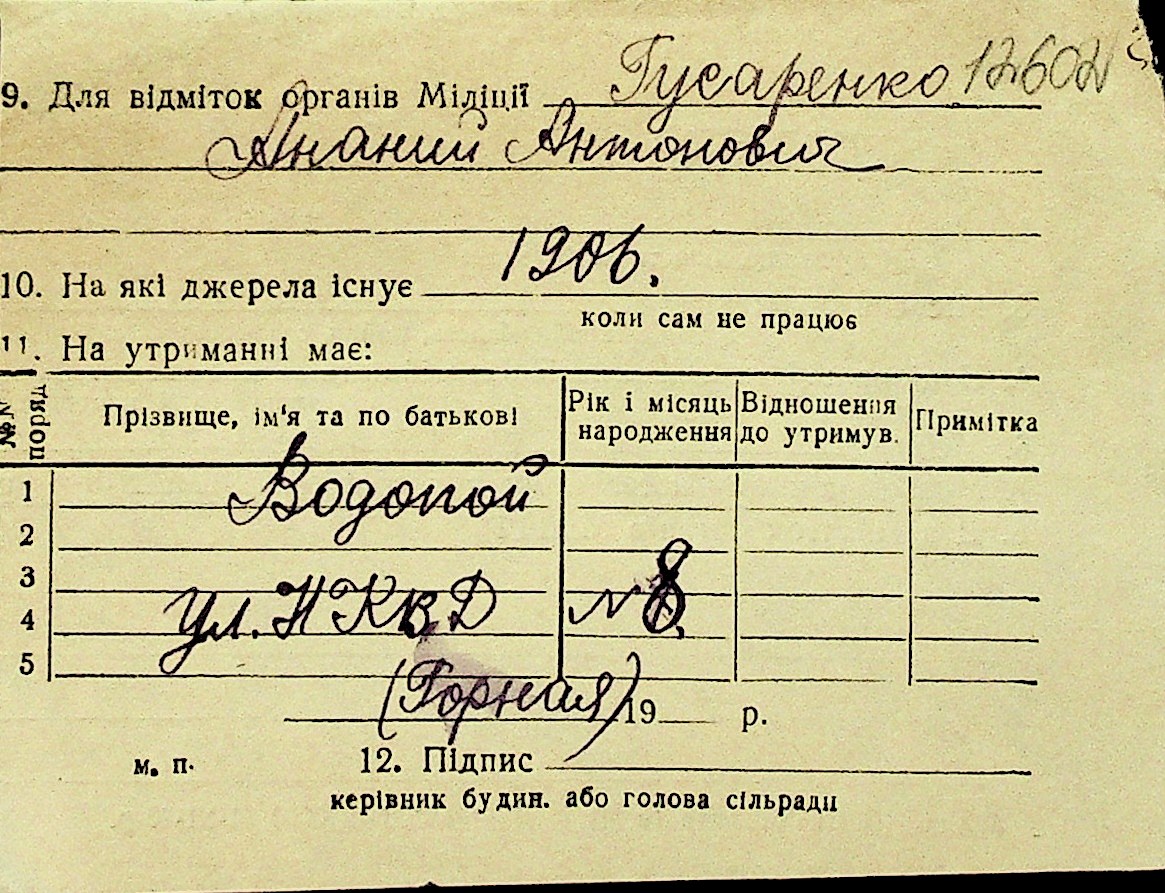 Гусаренко 12602
9. Для відміток органів Міліції
Ананий Антонович
1906.
10. На які джерела існує
коли сам не працює
11. На утриманні має:
№№ поряд
Прізвище, ім'я та по батькові
Рік і місяць народження
Відношення до утримув.
Примітка
1
Водопой
2
3
4 ул. НКВД № 8.
5
(Горная) 19 р.
м. п. 12. Підпис
керівник будин. або голова сільради